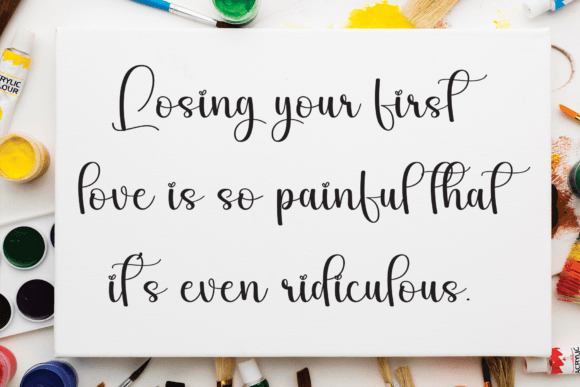 Losing your first
love is so painful that
it's even ridiculous.
ACRYLIC
COLOUR
ACRYLIC